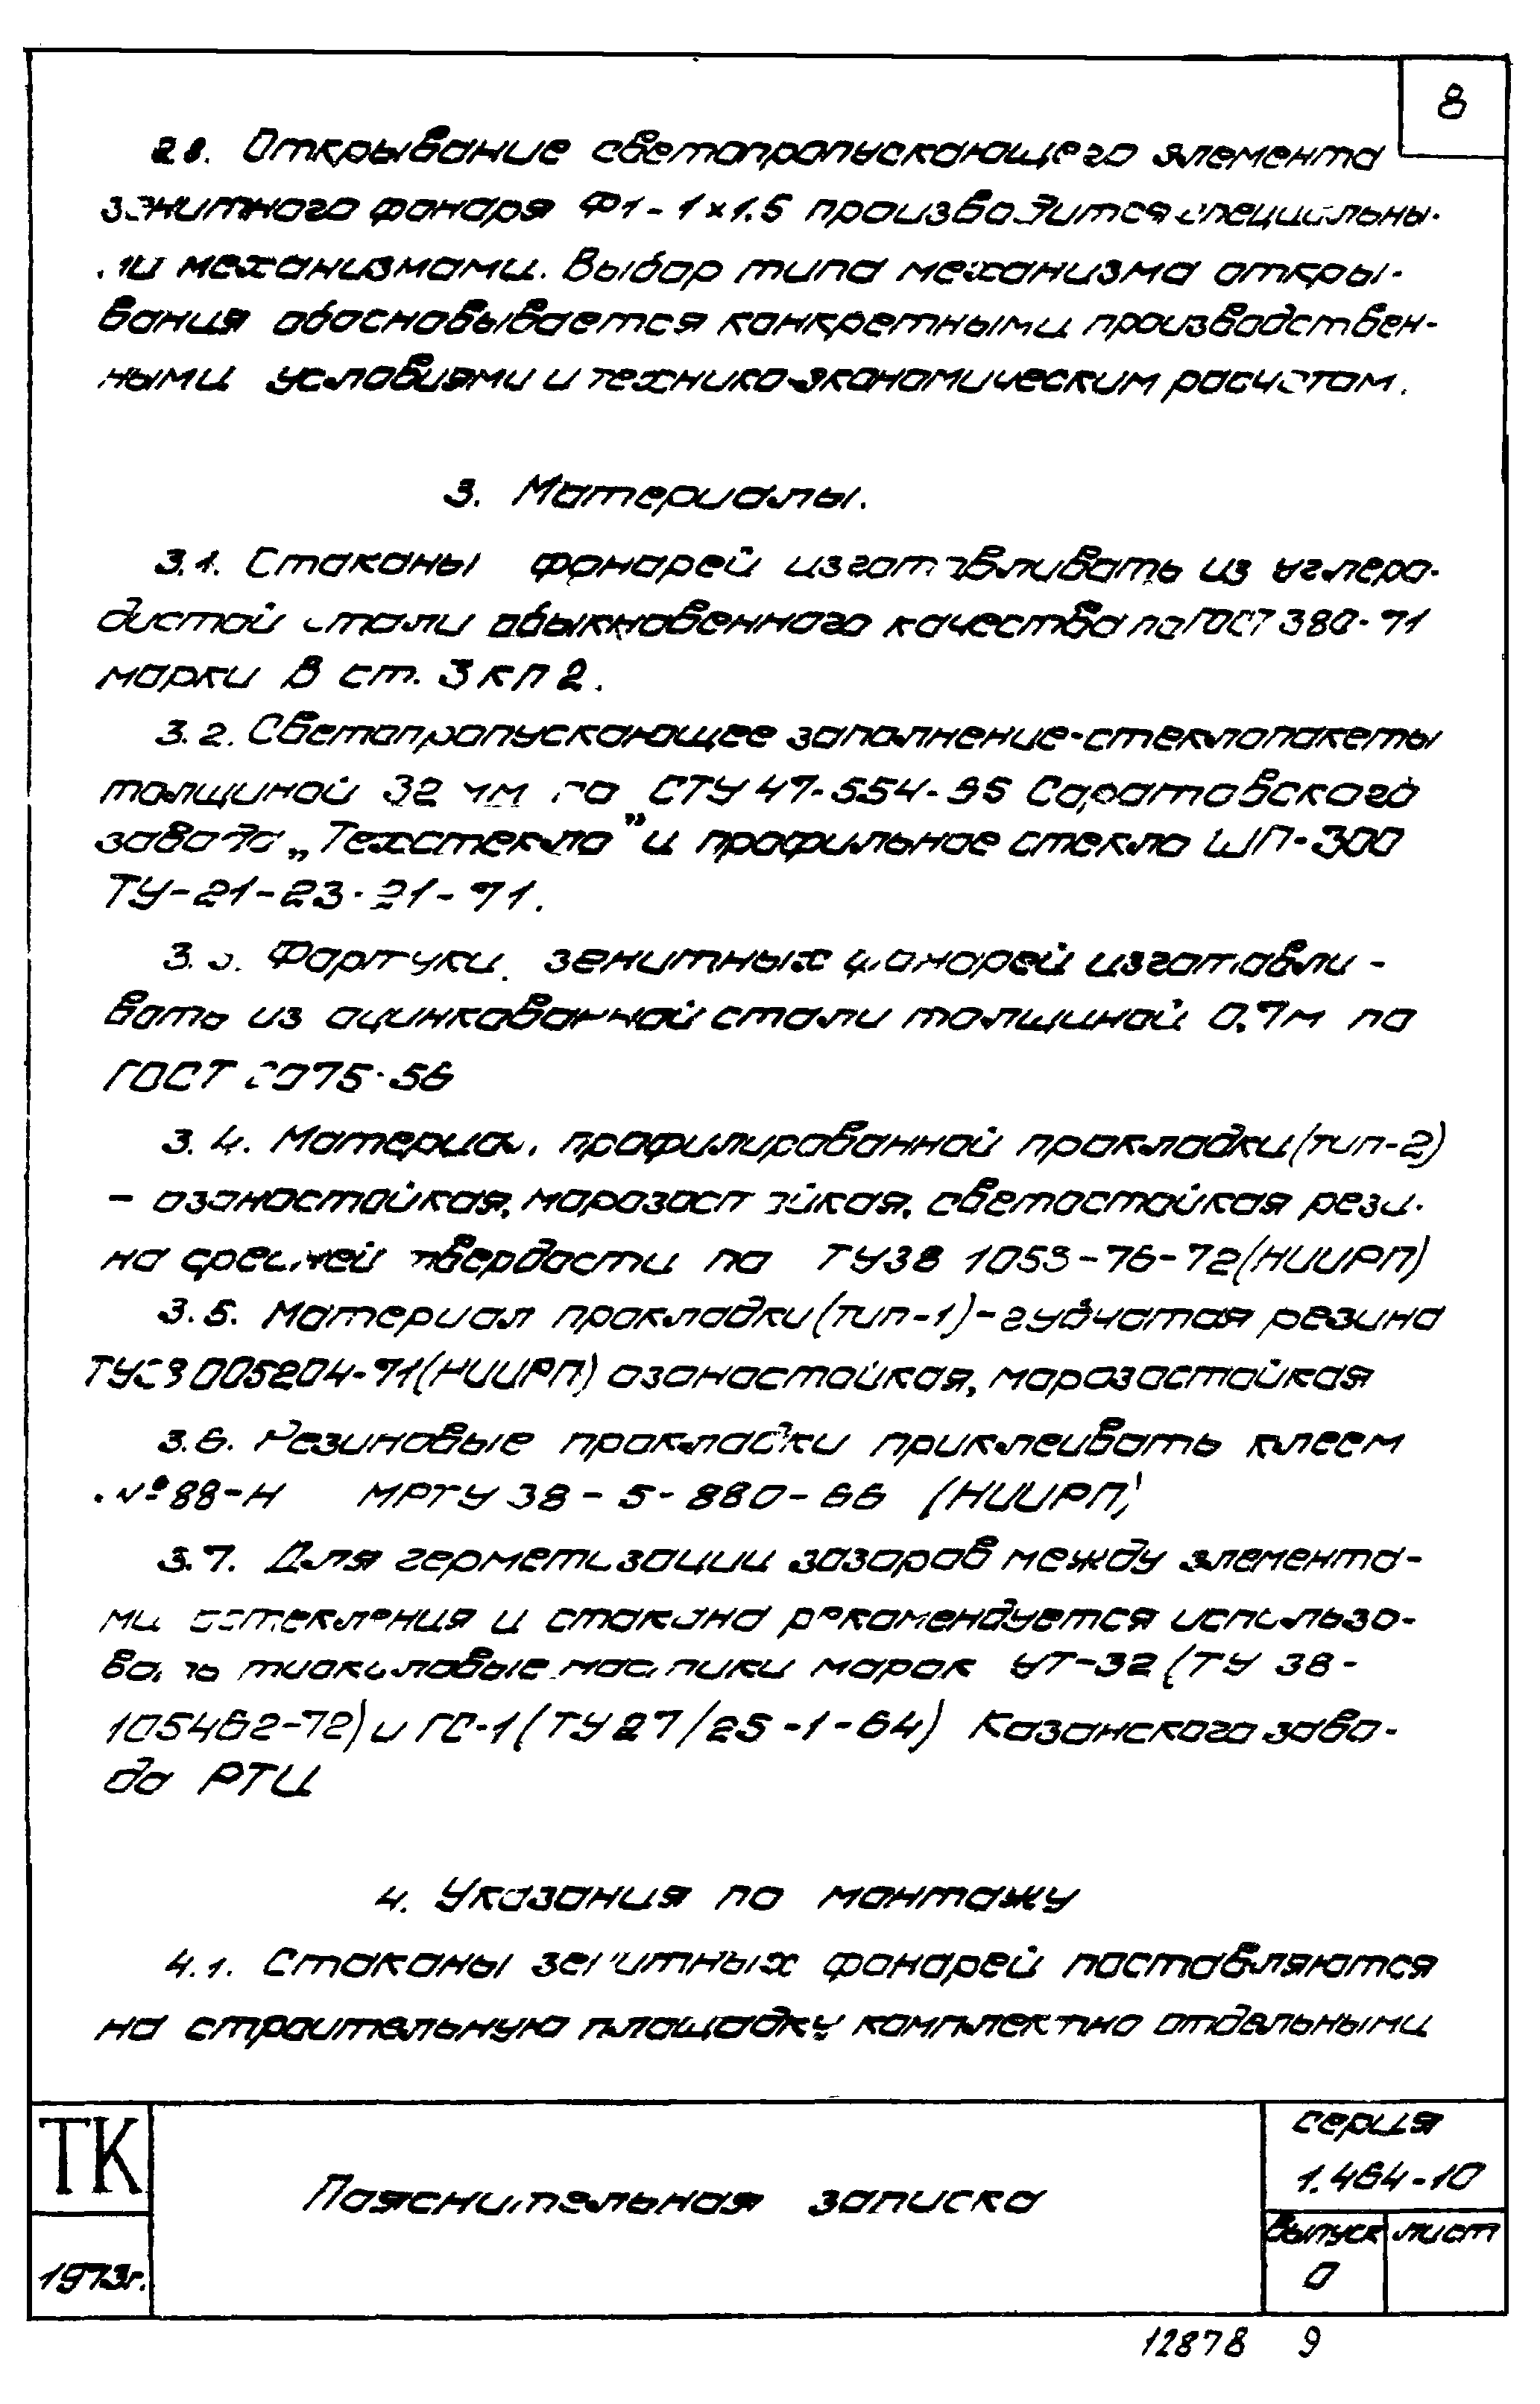 8
2.8. Открывание светопропускающего элемента
зенитного фонаря Ф1-1×1.5 производится специальны-
ми механизмами. Выбор типа механизма откры-
вания обосновывается конкретными производствен-
ными условиями и технико-экономическим расчетом.
3. Материалы.
3.1. Стаканы фонарей изготавливать из углеро-
дистой стали обыкновенного качества по ГОСТ 380-71
марки В ст. 3 кп 2.
3.2. Светопропускающее заполнение-стеклопакеты
толщиной 32 мм по СТУ 47-554-65 Саратовского
завода „Техстекло” и профильное стекло ШП-300
ТУ-21-23-21-71.
3.3. Фартуки зенитных фонарей изготавли-
вать из оцинкованной стали толщиной 0,7м по
ГОСТ 8075-56
3.4. Материал профилированной прокладки (тип-2)
- озоностойкая, морозостойкая, светостойкая рези-
на средней твердости по ТУ38 1053-76-72 (НИИРП)
3.5. Материал прокладки (тип-1)-губчатая резина
005204-71 (НИИРП) озоностойкая, морозостойкая
3.6. Резиновые прокладки приклеивать клеем
№88-Н МРТУ 38-5-880-66 (НИИРП)
3.7. Для герметизации зазоров между элемента-
ми остекления и стакана рекомендуется использо-
вать тиоколовые мастики марок УТ-32 (ТУ 38-
105462-72) и ГС-1 (ТУ 27/25-1-64) Казанского заво-
да РТИ
4. Указания по монтажу
4.1. Стаканы зенитных фонарей поставляются
на строительную площадку комплектно отдельными
ТК
1973г.
Пояснительная записка
серия
1.464-10
выпуск лист
0
12878 9